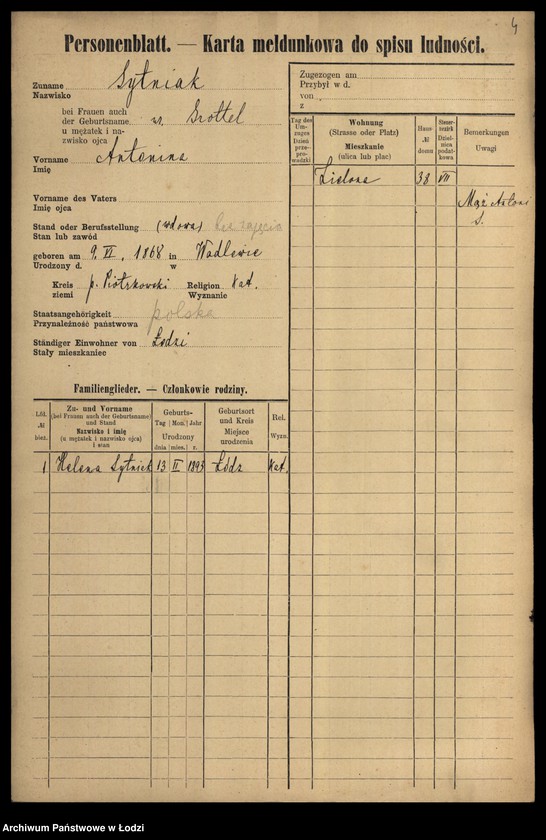 4
Personenblatt. — Karta meldunkowa do spisu ludności.
Zuname Sytniak
Nazwisko
bei Frauen auch
der Geburtsname z d. Grottel
u mężatek i na-
zwisko ojca
Vorname Antonina
Imię
Vorname des Vaters
Imię ojca
Stand oder Berufsstellung (wdowa) bez zajęcia
Stan lub zawód
geboren am 9. VI. 1868 in Wadlewie
Urodzony d. w
Kreis p. Piotrkowski Religion Kat.
ziemi Wyznanie
Staatsangehörigkeit polska
Przynależność państwowa
Ständiger Einwohner von Łodzi
Stały mieszkaniec
Familienglieder. — Członkowie rodziny.
Lfd. № bież.
Zu- und Vorname
(bei Frauen auch der Geburtsname)
und Stand
Nazwisko i imię
(u mężatek i nazwisko ojca)
i stan
Geburts-
Tag Mon. Jahr
Urodzony
dnia mies. r.
Geburtsort
und Kreis
Miejsce
urodzenia
Rel.
Wyzn.
1 Helena Sytniak 13 II 1893 Łódź Kat.
Zugezogen am
Przybył w d.
von
z
Tag des
Um-
zuges
Dzień
prze-
pro-
wadzki
Wohnung
(Strasse oder Platz)
Mieszkanie
(ulica lub plac)
Haus-
№
domu
Steuer-
bezirk
Dziel-
nica
podat-
kowa
Bemerkungen
Uwagi
Zielona 38 VII
Mąż Antoni
Archiwum Państwowe w Łodzi